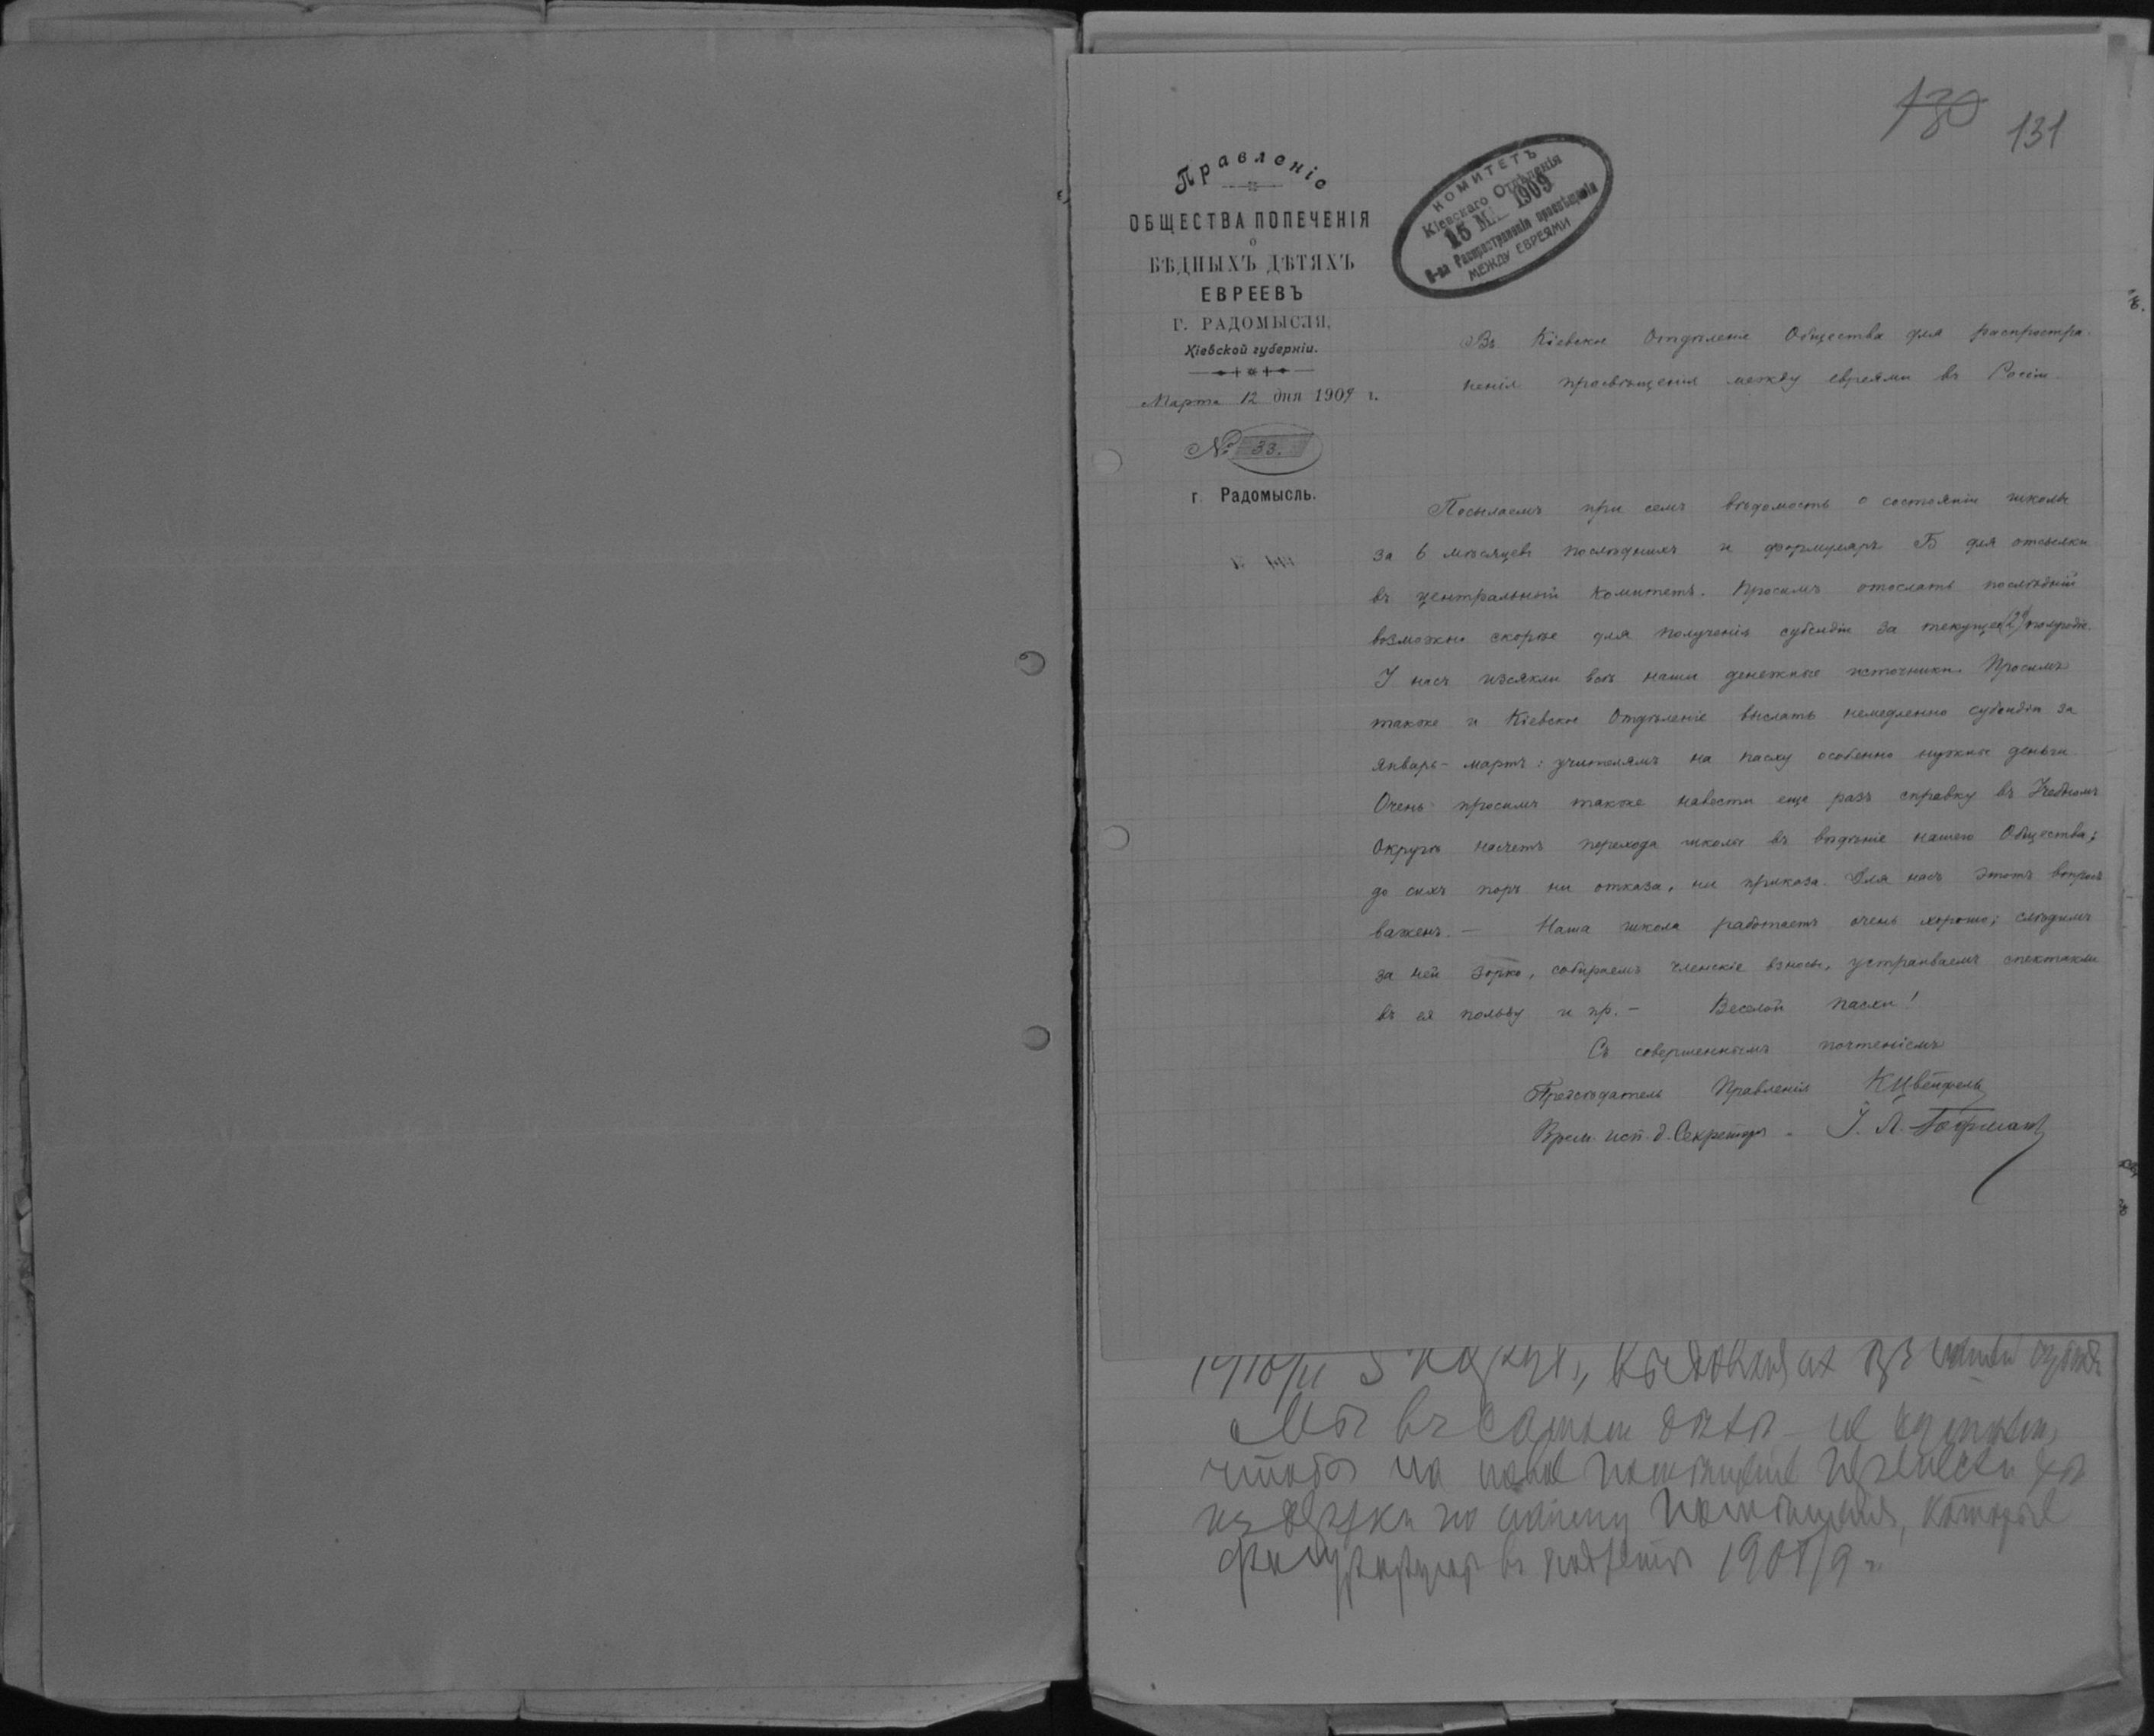 130 131
Правленіе
ОБЩЕСТВА ПОПЕЧЕНІЯ
о
БѢДНЫХЪ ДѢТЯХЪ
ЕВРЕЕВЪ
Г. РАДОМЫСЛЯ,
Кіевской губерніи.
Марта 12 дня 1909 г.
№ 33.
г. Радомысль.
КОМИТЕТЪ
Кіевскаго Отдѣленія
15 МАР 1909
О-ва Распространенія просвѣщенія
МЕЖДУ ЕВРЕЯМИ
Въ Кіевское Отдѣленіе Общества для распростра-
ненія просвѣщенія между евреями въ Россіи.
Посылаемъ при семъ вѣдомость о состояніи школы
за 6 мѣсяцевъ послѣднихъ и формуляръ Б для отсылки
въ центральный Комитетъ. Просимъ отослать послѣдній
возможно скорѣе для полученія субсидіи за текущее (2е) полугодіе.
У насъ изсякли всѣ наши денежные источники. Просимъ
также и Кіевское Отдѣленіе выслать немедленно субсидію за
январь - мартъ: учителямъ на пасху особенно нужны деньги
Очень просимъ также навести еще разъ справку въ Учебномъ
Округѣ насчетъ перехода школы въ вѣдѣніе нашего Общества;
до сихъ поръ ни отказа, ни приказа. Для насъ этотъ вопросъ
важенъ. — Наша школа работаетъ очень хорошо; слѣдимъ
за ней зорко, собираемъ членскіе взносы, устраиваемъ спектакли
въ ея пользу и пр. — Веселой пасхи!
Съ совершеннымъ почтеніемъ
Предсѣдатель Правленія К Цвейфель
Врем. исп. д. Секретаря - І. Л. Гофманъ
Мы въ самомъ
чтобы на новое помѣщеніе
по помѣщенія, которые
въ 1908/9 г.